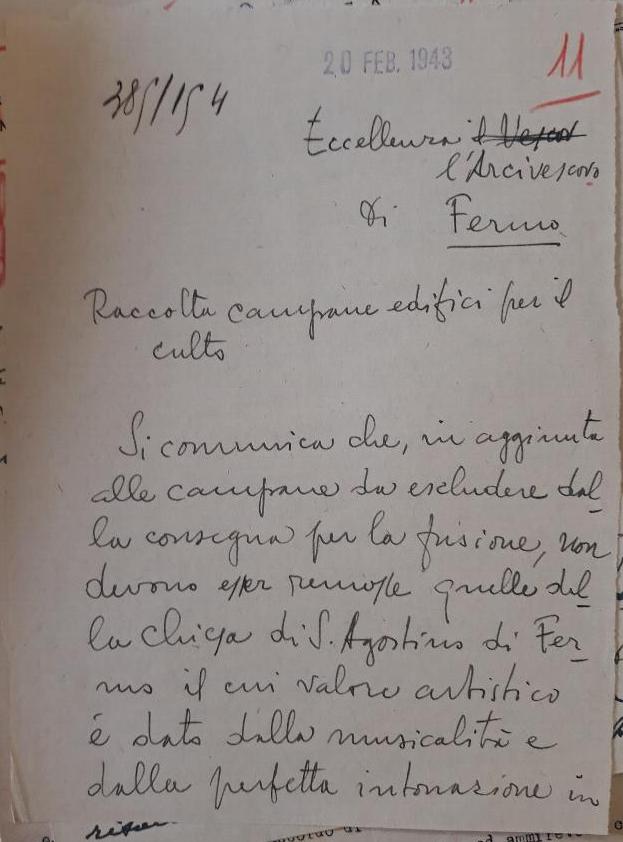 20 FEB. 1943
11
385/154
Eccellenza il Vescov
l'Arcivescovo
di Fermo
Raccolta campane edifici per il
culto
Si comunica che, in aggiunta
alle campane da escludere dal
la consegna per la fusione, non
devono esser remosse quelle del
la chiesa di S. Agostino di Fer
mo il cui valore artistico
é dato dalla musicalità e
dalla perfetta intonazione in